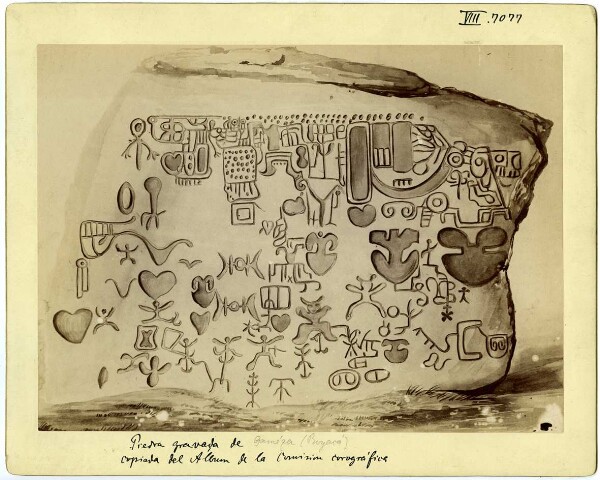 VIII.7077
Piedra gravada de Gámeza (Boyacá)
copiada del Album de la Comision corográfica